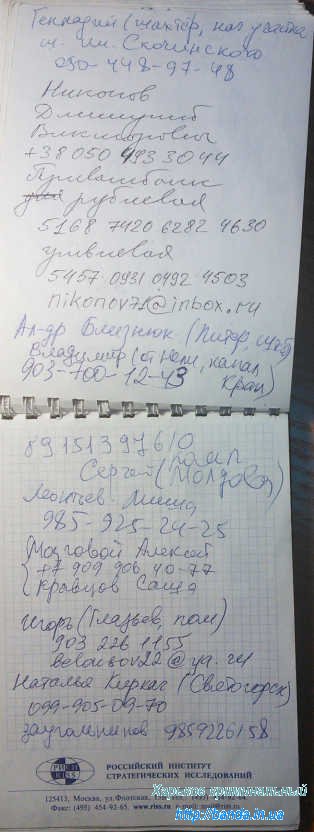 Геннадий (шахтёр, нач участка
ш. им. Скочинского
050-448-97-48
Никонов
Дмитрий
Викторович
+38 050 493 30 44
Приватбанк
рублевая
5168 7420 6282 4630
гривневая
5457 0931 0492 4503
nikonov71@inbox.ru
Ал-др Близнюк (Питер,
Владимир (от Нели, канал
903-700-12-43 Крап)
89151397610
Сергей (Молдова)
Леонтьев Миша
985-925-24-25
Мозговой Алексей
+7 909 906 40-77
Кравцов Саша
Игорь (Глазьев, пом)
903 226 1155
belousov22@ya.ru
Наталья Киркач (Святогорск)
099-905-09-70
Заугольников 9859226158
РИСИ
RISS
РОССИЙСКИЙ ИНСТИТУТ
СТРАТЕГИЧЕСКИХ ИССЛЕДОВАНИЙ
125413, Москва, ул.Флотская,
Факс: (495) 454-92-65, www.riss.ru
Харьков криминальный
http://banda.kh.ua